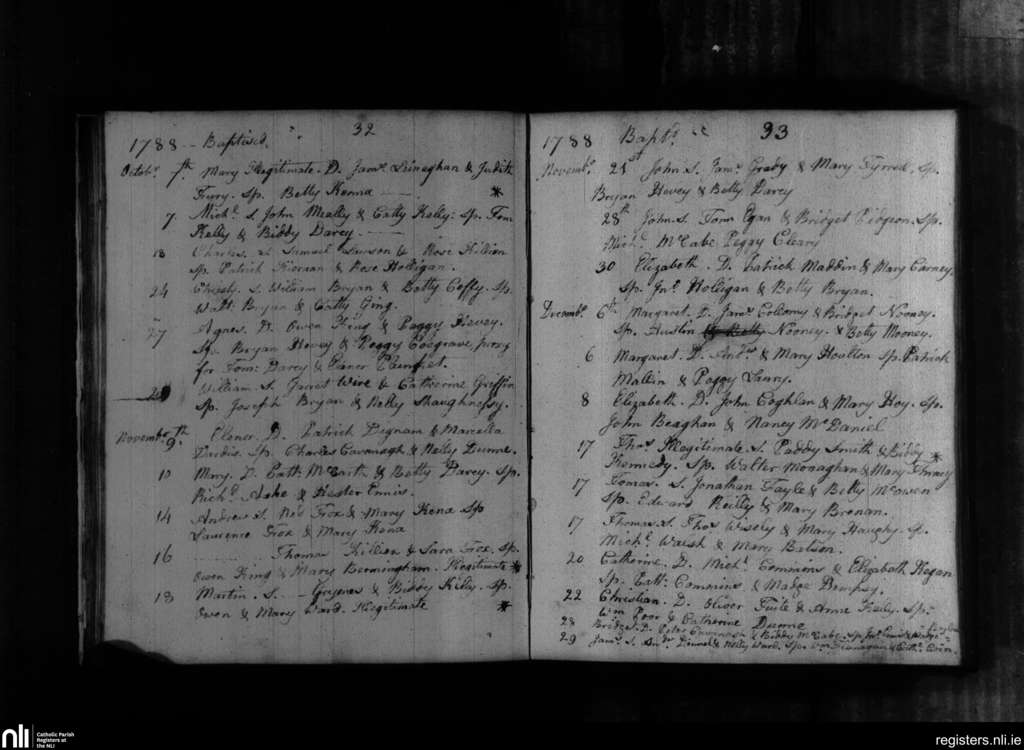 32
1788 - Baptised.
Octobr. 7th Mary Illegitimate. D. Jams. Lineghan & Judith
Fury. Sp. Betty Kenna *
7 Michl. S. John Meally & Catty Kelly: Sp. Tom
Kelly & Biddy Darcy.
18 Charles. S. Samuel Lawson & Rose Killian
Sp. Patrick Kiernan & Rose Holligan.
24 Christy. S. William Bryan & Batty Coffy. Sp.
Walt. Bryan & Catty Ging.
27 Agnes. D. Owen King & Peggy Hevey.
Sp. Bryan Hevey & Peggy Cosgrave, proxy
for Tom: Darcy & Elener
William. S. Garret Wire & Catherine Griffin
Sp. Joseph Bryan & Nelly Shaughnessy.
Novembr. 9th. Elener. D. Patrick Degnam & Marcella
Dardis. Sp. Charles Cavanagh & Nelly Dunne.
10 Mary. D. Patt: McCart & Betty Darcy. Sp.
Richd. Ashe & Hester Ennis.
14 Andrew S. Ned Fox & Mary Kena Sp
Laurence Fox & Mary Kena
16 Thomas Killian & Sara Fox. Sp.
Owen King & Mary Bermingham. Illegitimate *
18 Martin. S. & Biddy Kelly. Sp.
Owen & Mary Ward. Illegitimate *
33
1788 Baptd.
Novembr. 21st John S. Jams. Grady & Mary Tyrrel. Sp.
Bryan Hevey & Betty Darcy
28th John S. Tom Egan & Bridget Pidgeon. Sp.
Michl. McCabe Peggy Cleary
30 Elizabeth. D. Patrick Maddin & Mary Carney.
Sp. Jno. Holligan & Betty Bryan.
Decembr. 6th Margaret. D. Jams. Coleomy & Bridget Nooney.
Sp. Austin Nooney. & Betty Mooney.
6 Margaret. D. Antos. & Mary Houlton Sp. Patrick
Mallin & Peggy Lanry.
8 Elizabeth. D. John Coghlan & Mary Hoy. Sp.
John Beaghan & Nancy McDaniel
17 Thos. Illegitimate S. Paddy Smith & Biddy *
Kennedy. Sp. Walter Monaghan & Mary
17 Tomas. S. Jonathan Fayle & Betty McOwen
Sp. Edward Reilly & Mary Brenan.
17 Thomas. S. Thos. Wisely & Mary Haughy. Sp.
Michl. Walsh & Mary Batson.
20 Catherine. D. Michl. Commons & Elizabeth Hegan
Sp. Patt: Commins & Madge Dempsy.
22 Christian. D. Oliver Tuite & Anne Sp.
Wm. Poor & Catherine Dunne
28 Bridget. D. Peter Cavanagh & Biddy McCabe. Sp. Jno.
29 Jams. S. & Nelly Ward. Sp. Wm. Flanagan & Cathe.
nli Catholic Parish
Registers at
the NLI
registers.nli.ie